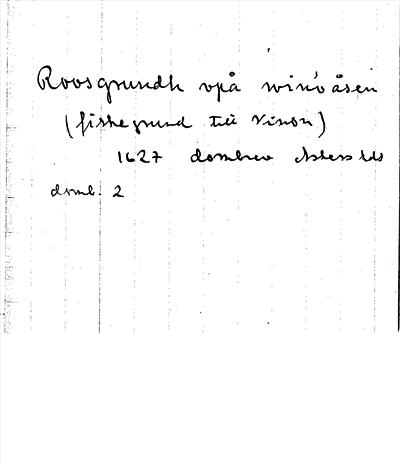 Roosgrundh vpå winöåsen
(fiskegrund till Vinön)
1627 dombrev Askers hds
domb. 2